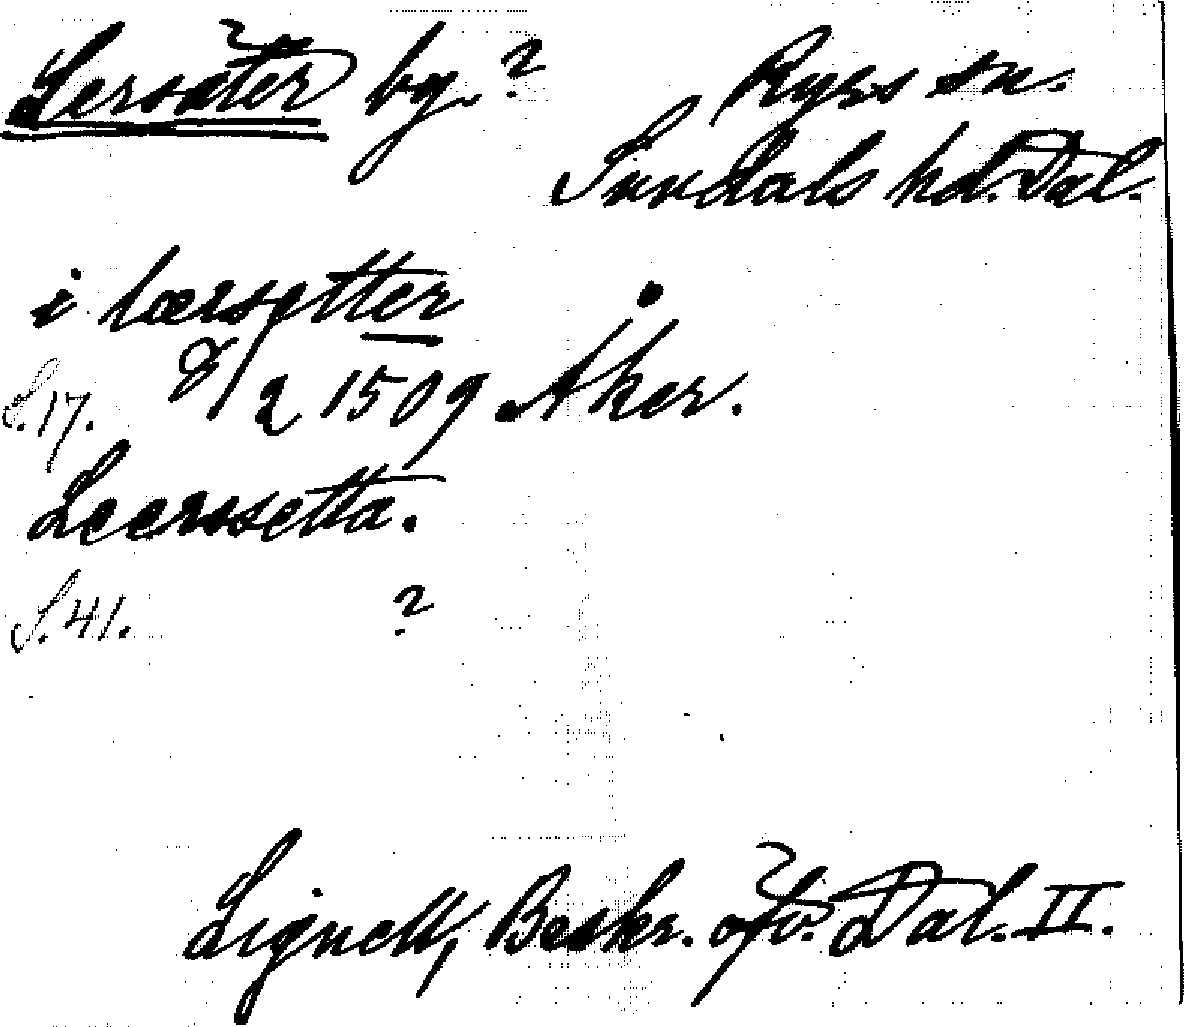 Lersäter bg.? Ryrs sn.
Sundals hd. Dal.
i lærsetter
S. 17. 8/2 1509 Åker.
Leerssetta.
S. 41. ?
Lignell, Beskr. öfv. Dal. II.